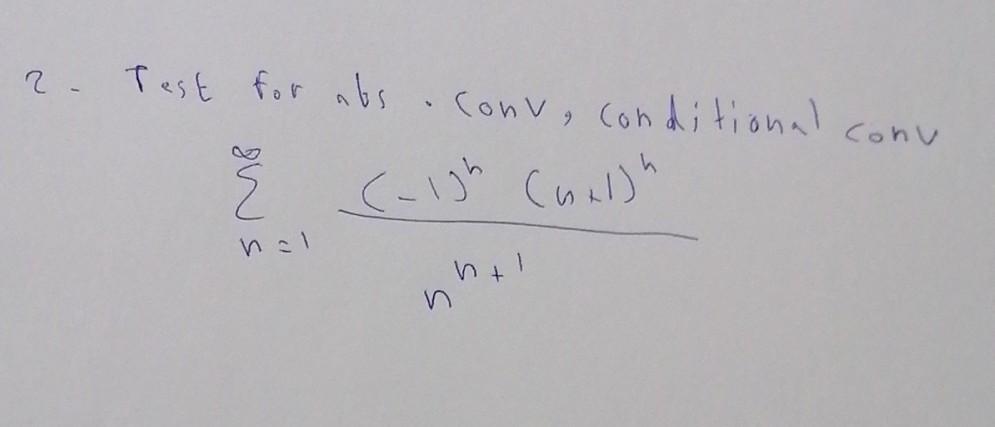 2- Test for abs. conv, conditional conv
∞
Σ (-1)^n (n+1)^n
n=1
n^n+1